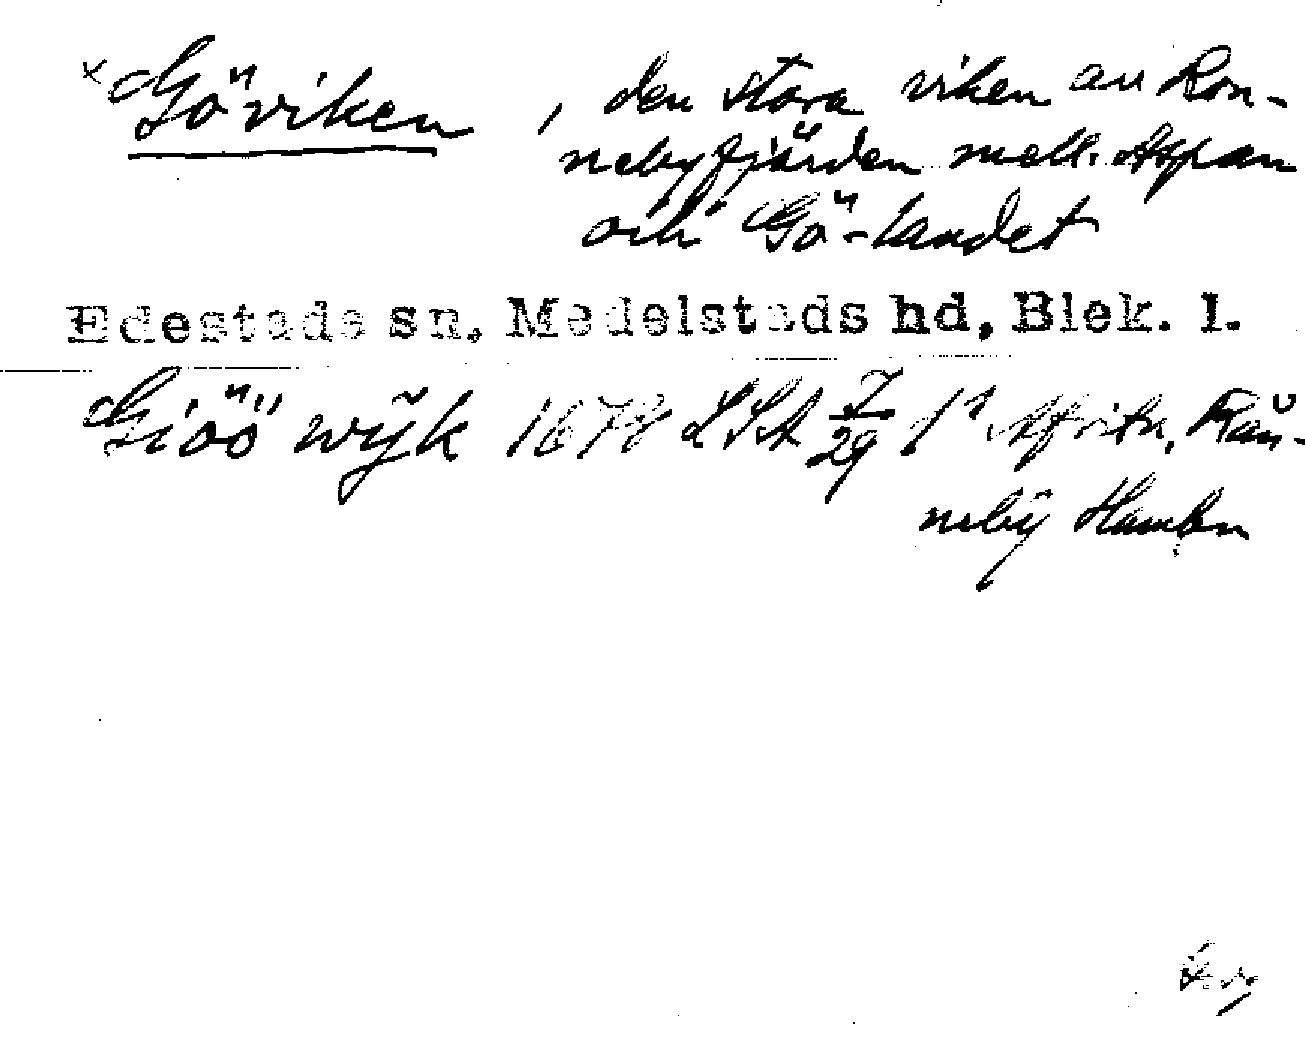 × Göviken, den stora viken av Ron-
nebyfjärden mell. Aspan
och Gö-landet
Edestads sn, Medelstads hd, Blek. l.
Giöö wÿk 1678 LSA 7/29 Afritn, Rŭn-
nebÿ Hambn